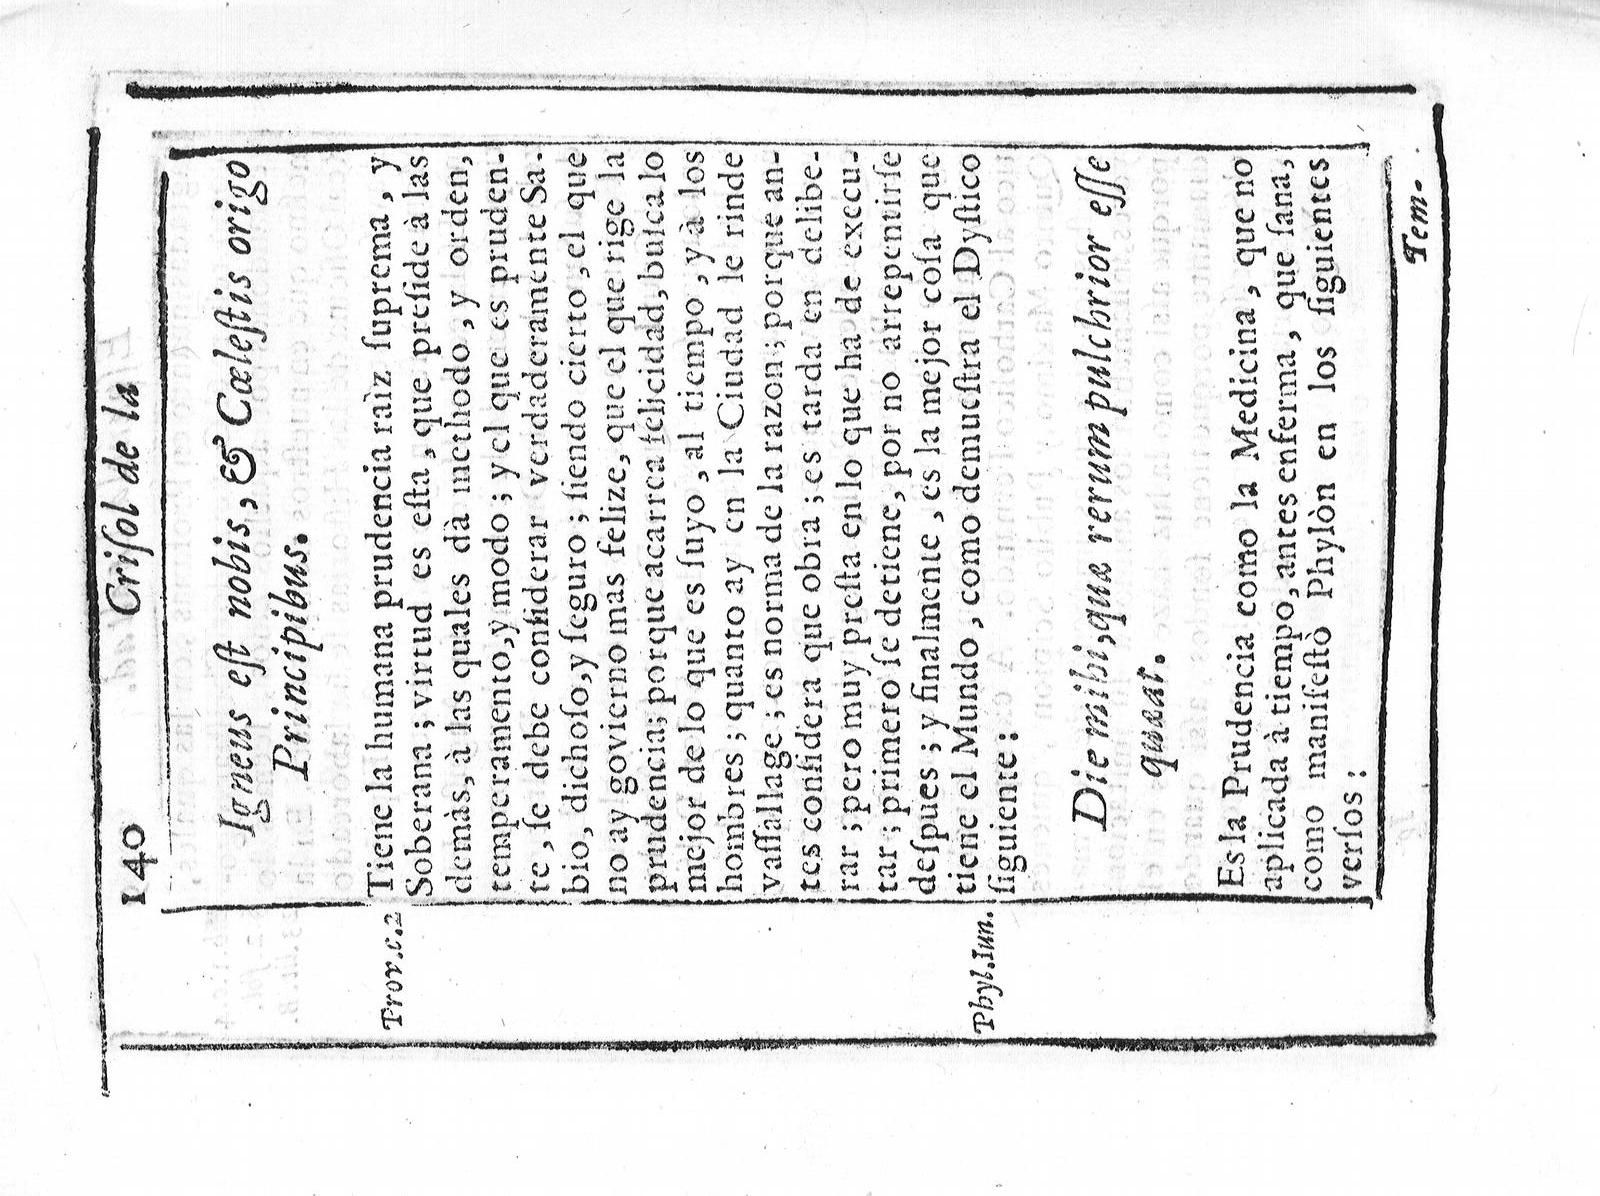 140 Criſol de la
Igneus eſt nobis, & Cæleſtis origo
Principibus.
Prov.c.2
Tiene la humana prudencia raìz ſuprema, y
Soberana; virtud es eſta, que preſide à las
demàs, à las quales dà methodo, y orden,
temperamento, y modo; y el que es pruden-
te, ſe debe conſiderar verdaderamente Sa-
bio, dichoſo, y ſeguro; ſiendo cierto, el que
no ay govierno mas felize, que el que rige la
prudencia; porque acarrea felicidad, buſca lo
mejor de lo que es ſuyo, al tiempo, y à los
hombres; quanto ay en la Ciudad le rinde
vaſſallage; es norma de la razon; porque an-
tes conſidera que obra; es tarda en delibe-
rar; pero muy preſta en lo que ha de execu-
tar; primero ſe detiene, por no arrepentirſe
deſpues; y finalmente, es la mejor coſa que
Phyl.Iun.
tiene el Mundo, como demueſtra el Dyſtico
ſiguiente:
Die mihi, quæ rerum pulchrior eſſe
quæat.
Es la Prudencia como la Medicina, que no
aplicada à tiempo, antes enferma, que ſana,
como manifeſtò Phylòn en los ſiguientes
verſos:
Tem-